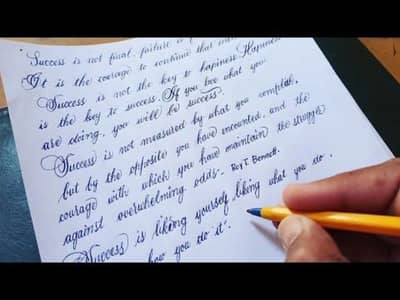 "Success is not final, failure is
It is the courage to continue that
Success is not the key to hapiness. Hapiness
is the key to success. If you love what you
are doing, you will be success.
Success is not measured by what you complish,
but by the opposite you have encounted, and the
courage with which you have maintain the struggle
against overwhelming odds. - Roy T. Bennett.
Success is liking yourself liking what you do,
how you do it".